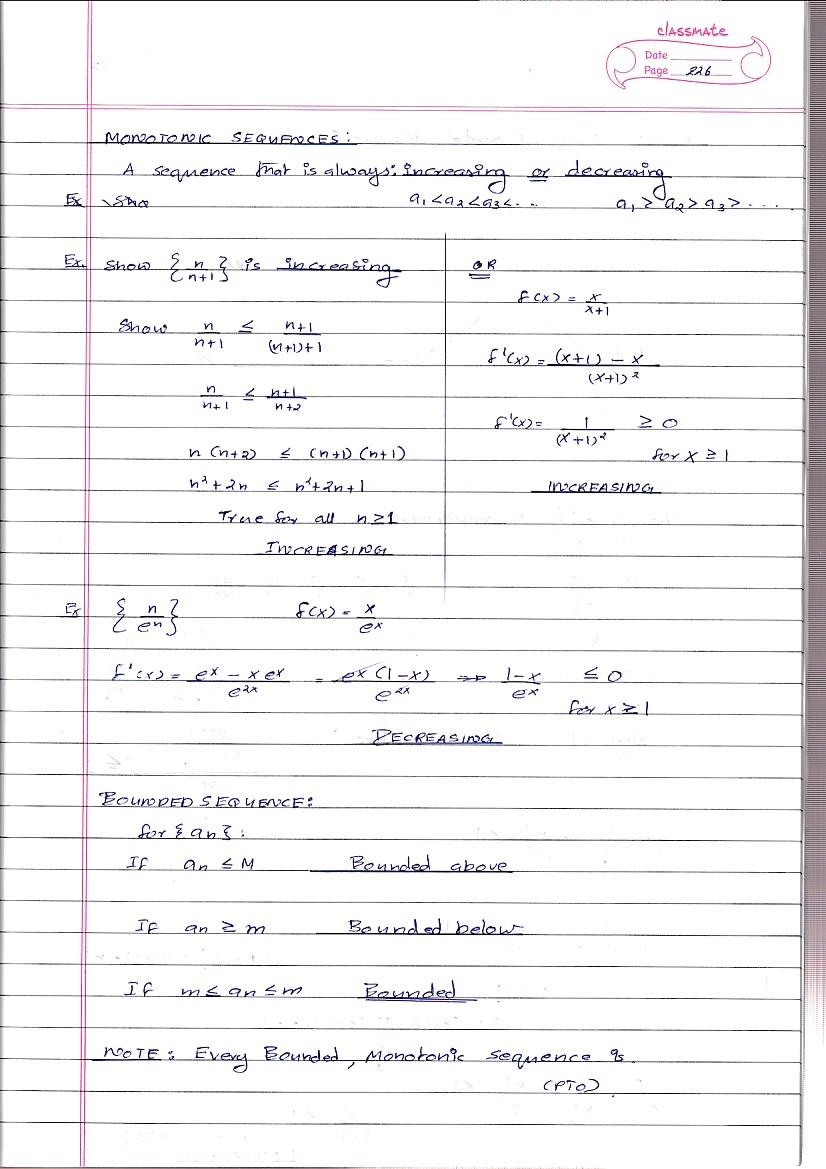 classmate
Date
Page 226
MONOTONIC SEQUENCES:
A sequence that is always: increasing or decreasing
Ex a₁<a₂<a₃<... a₁>a₂>a₃>....
Ex. Show {n/(n+1)} is increasing
Show n/(n+1) ≤ (n+1)/((n+1)+1)
n/(n+1) ≤ (n+1)/(n+2)
n(n+2) ≤ (n+1)(n+1)
n²+2n ≤ n²+2n+1
True for all n≥1
INCREASING
OR
f(x) = x/(x+1)
f'(x) = ((x+1) - x)/(x+1)²
f'(x) = 1/(x+1)² ≥ 0
for x ≥ 1
INCREASING
Ex {n/eⁿ} f(x) = x/eˣ
f'(x) = (eˣ - xeˣ)/e²ˣ = eˣ(1-x)/e²ˣ ⇒ (1-x)/eˣ ≤ 0
for x ≥ 1
DECREASING
BOUNDED SEQUENCE:
for {an}:
If an ≤ M Bounded above
If an ≥ m Bounded below
If m ≤ an ≤ m Bounded
NOTE: Every Bounded, Monotonic sequence is
(PTO)